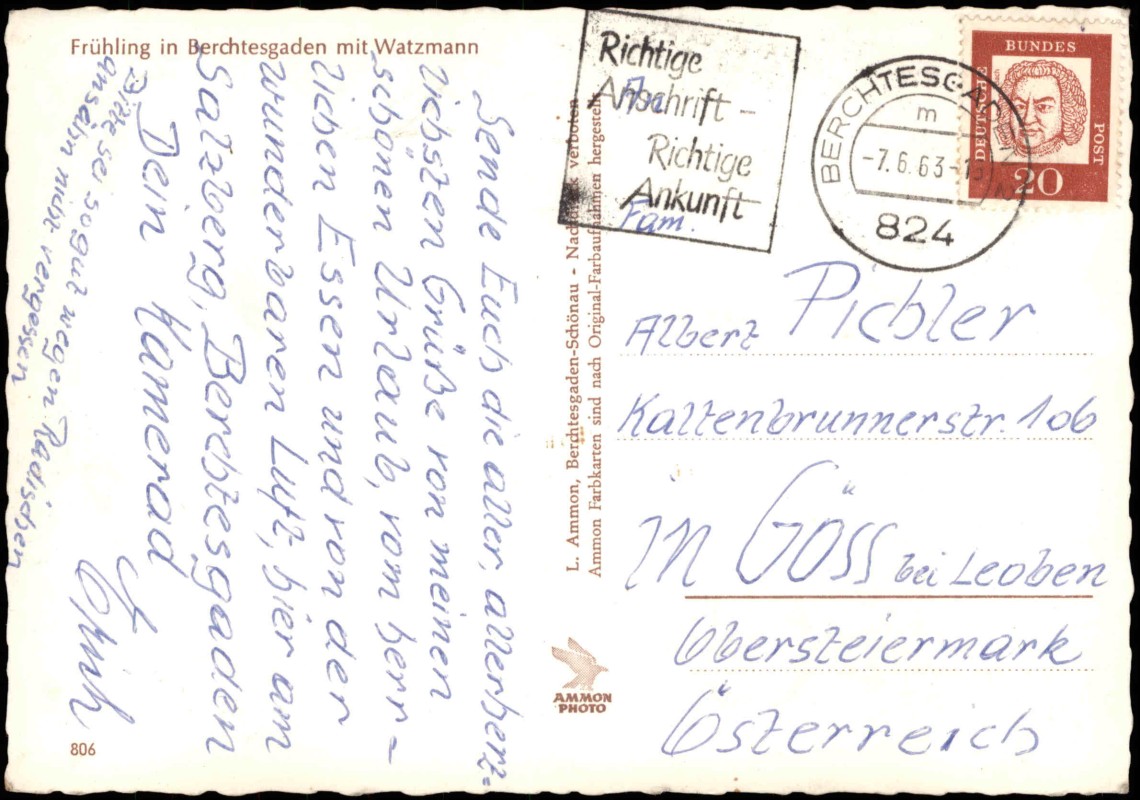 Frühling in Berchtesgaden mit Watzmann
Sende Euch die aller, allerherz=
lichsten Grüße von meinen
schönen Urlaub, vom herr-
lichen Essen und von der
wunderbaren Luft, hier am
Salzberg, Berchtesgaden
Dein Kamerad
Erich
Bitte sei so gut wegen Radischen
ansäin nicht vergessen
806
L. Ammon, Berchtesgaden-Schönau - Nachdruck verboten
Ammon Farbkarten sind nach Original-Farbaufnahmen hergestellt
AMMON
PHOTO
Richtige
Anschrift -
Richtige
Ankunft
BERCHTESGADEN
m
-7.6.63-18
824
DEUTSCHE
BUNDES
POST
20
An
Fam.
Albert Pichler
Kaltenbrunnerstr. 106
in Göss bei Leoben
Obersteiermark
Österreich